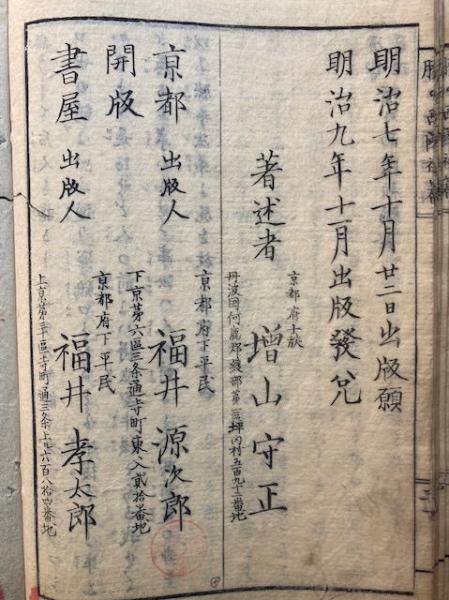 明治七年十月廿二日出版願
明治九年十一月出版發兌
京都府士族
丹波国何鹿郡綾部第三坪内村五百九十二番地
著述者 増山守正
京都府下平民
下京第六區三条通寺町東入貳拾番地
京都 出版人 福井源次郎
開版
京都府下平民
上京第三十區寺町通三条上ル六百八拾四番地
書屋 出版人 福井孝太郎